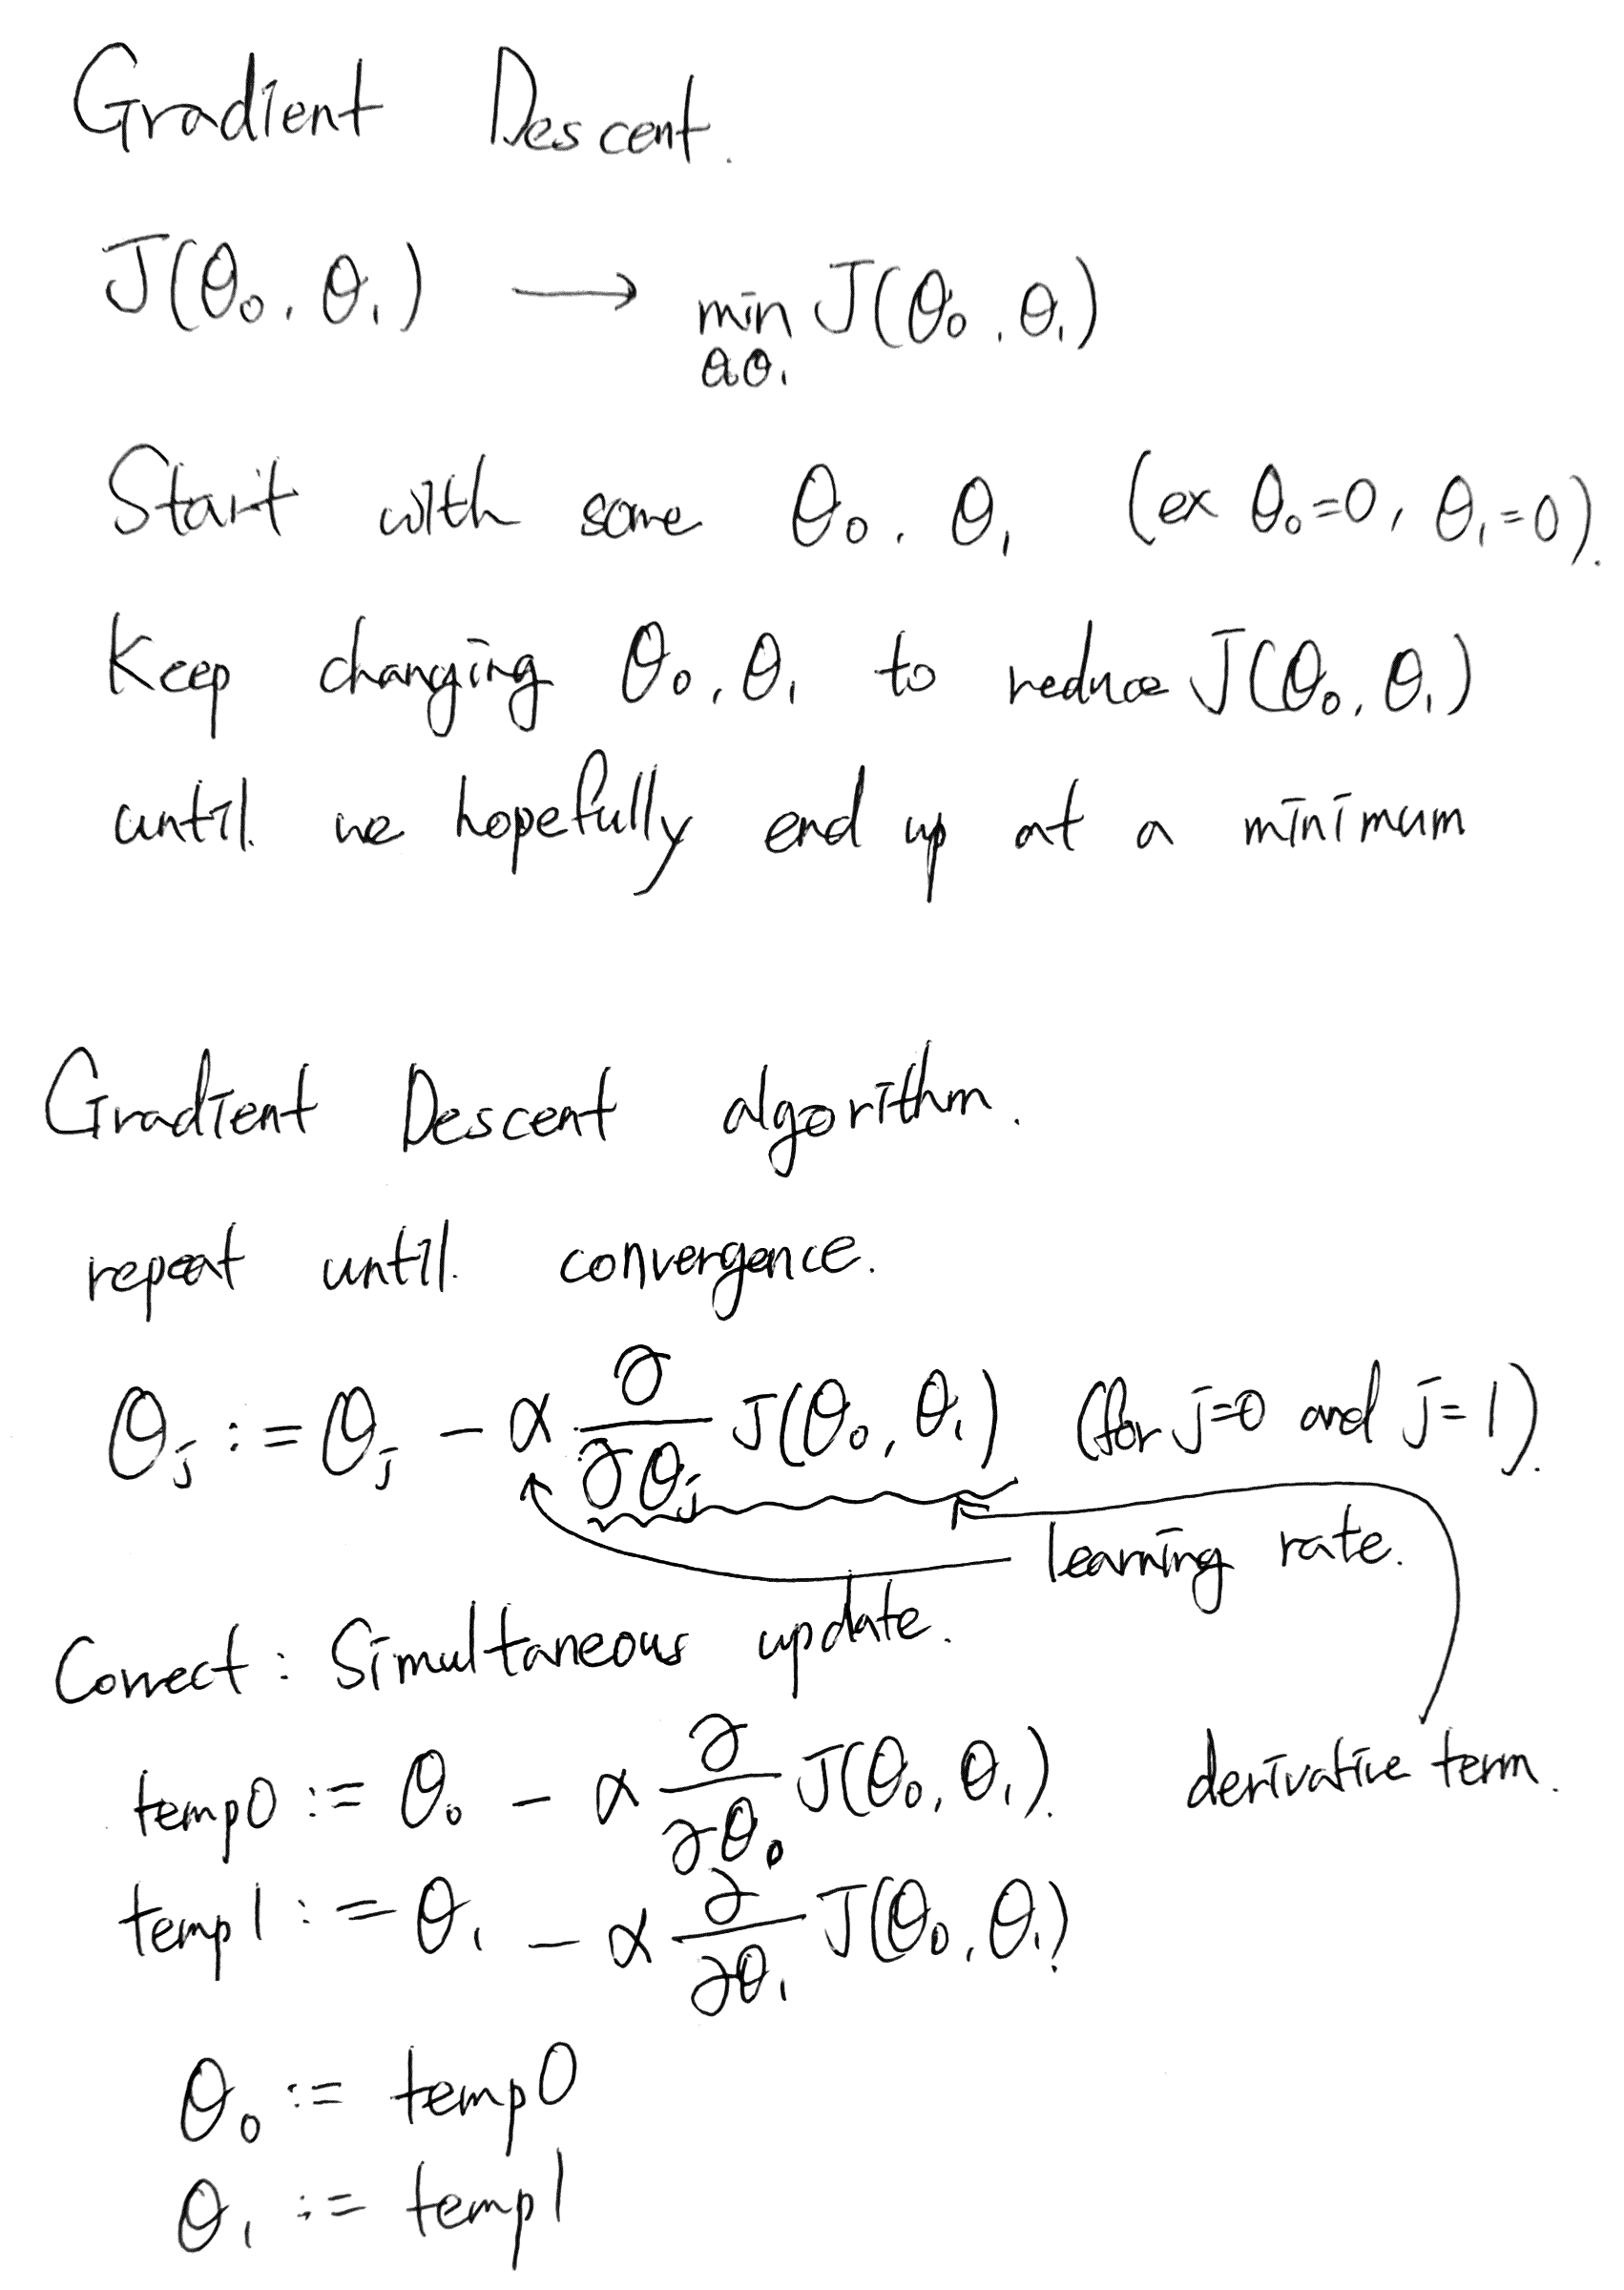 Gradient Descent.
J(θ₀, θ₁) → min J(θ₀, θ₁)
θ₀θ₁
Start with some θ₀, θ₁ (ex θ₀=0, θ₁=0).
Keep changing θ₀, θ₁ to reduce J(θ₀, θ₁)
until we hopefully end up at a minimum
Gradient Descent algorithm.
repeat until convergence.
θⱼ := θⱼ - α ∂/∂θⱼ J(θ₀, θ₁) (for j=0 and j=1).
learning rate.
Correct: Simultaneous update.
temp0 := θ₀ - α ∂/∂θ₀ J(θ₀, θ₁).
derivative term.
temp1 := θ₁ - α ∂/∂θ₁ J(θ₀, θ₁).
θ₀ := temp0
θ₁ := temp1